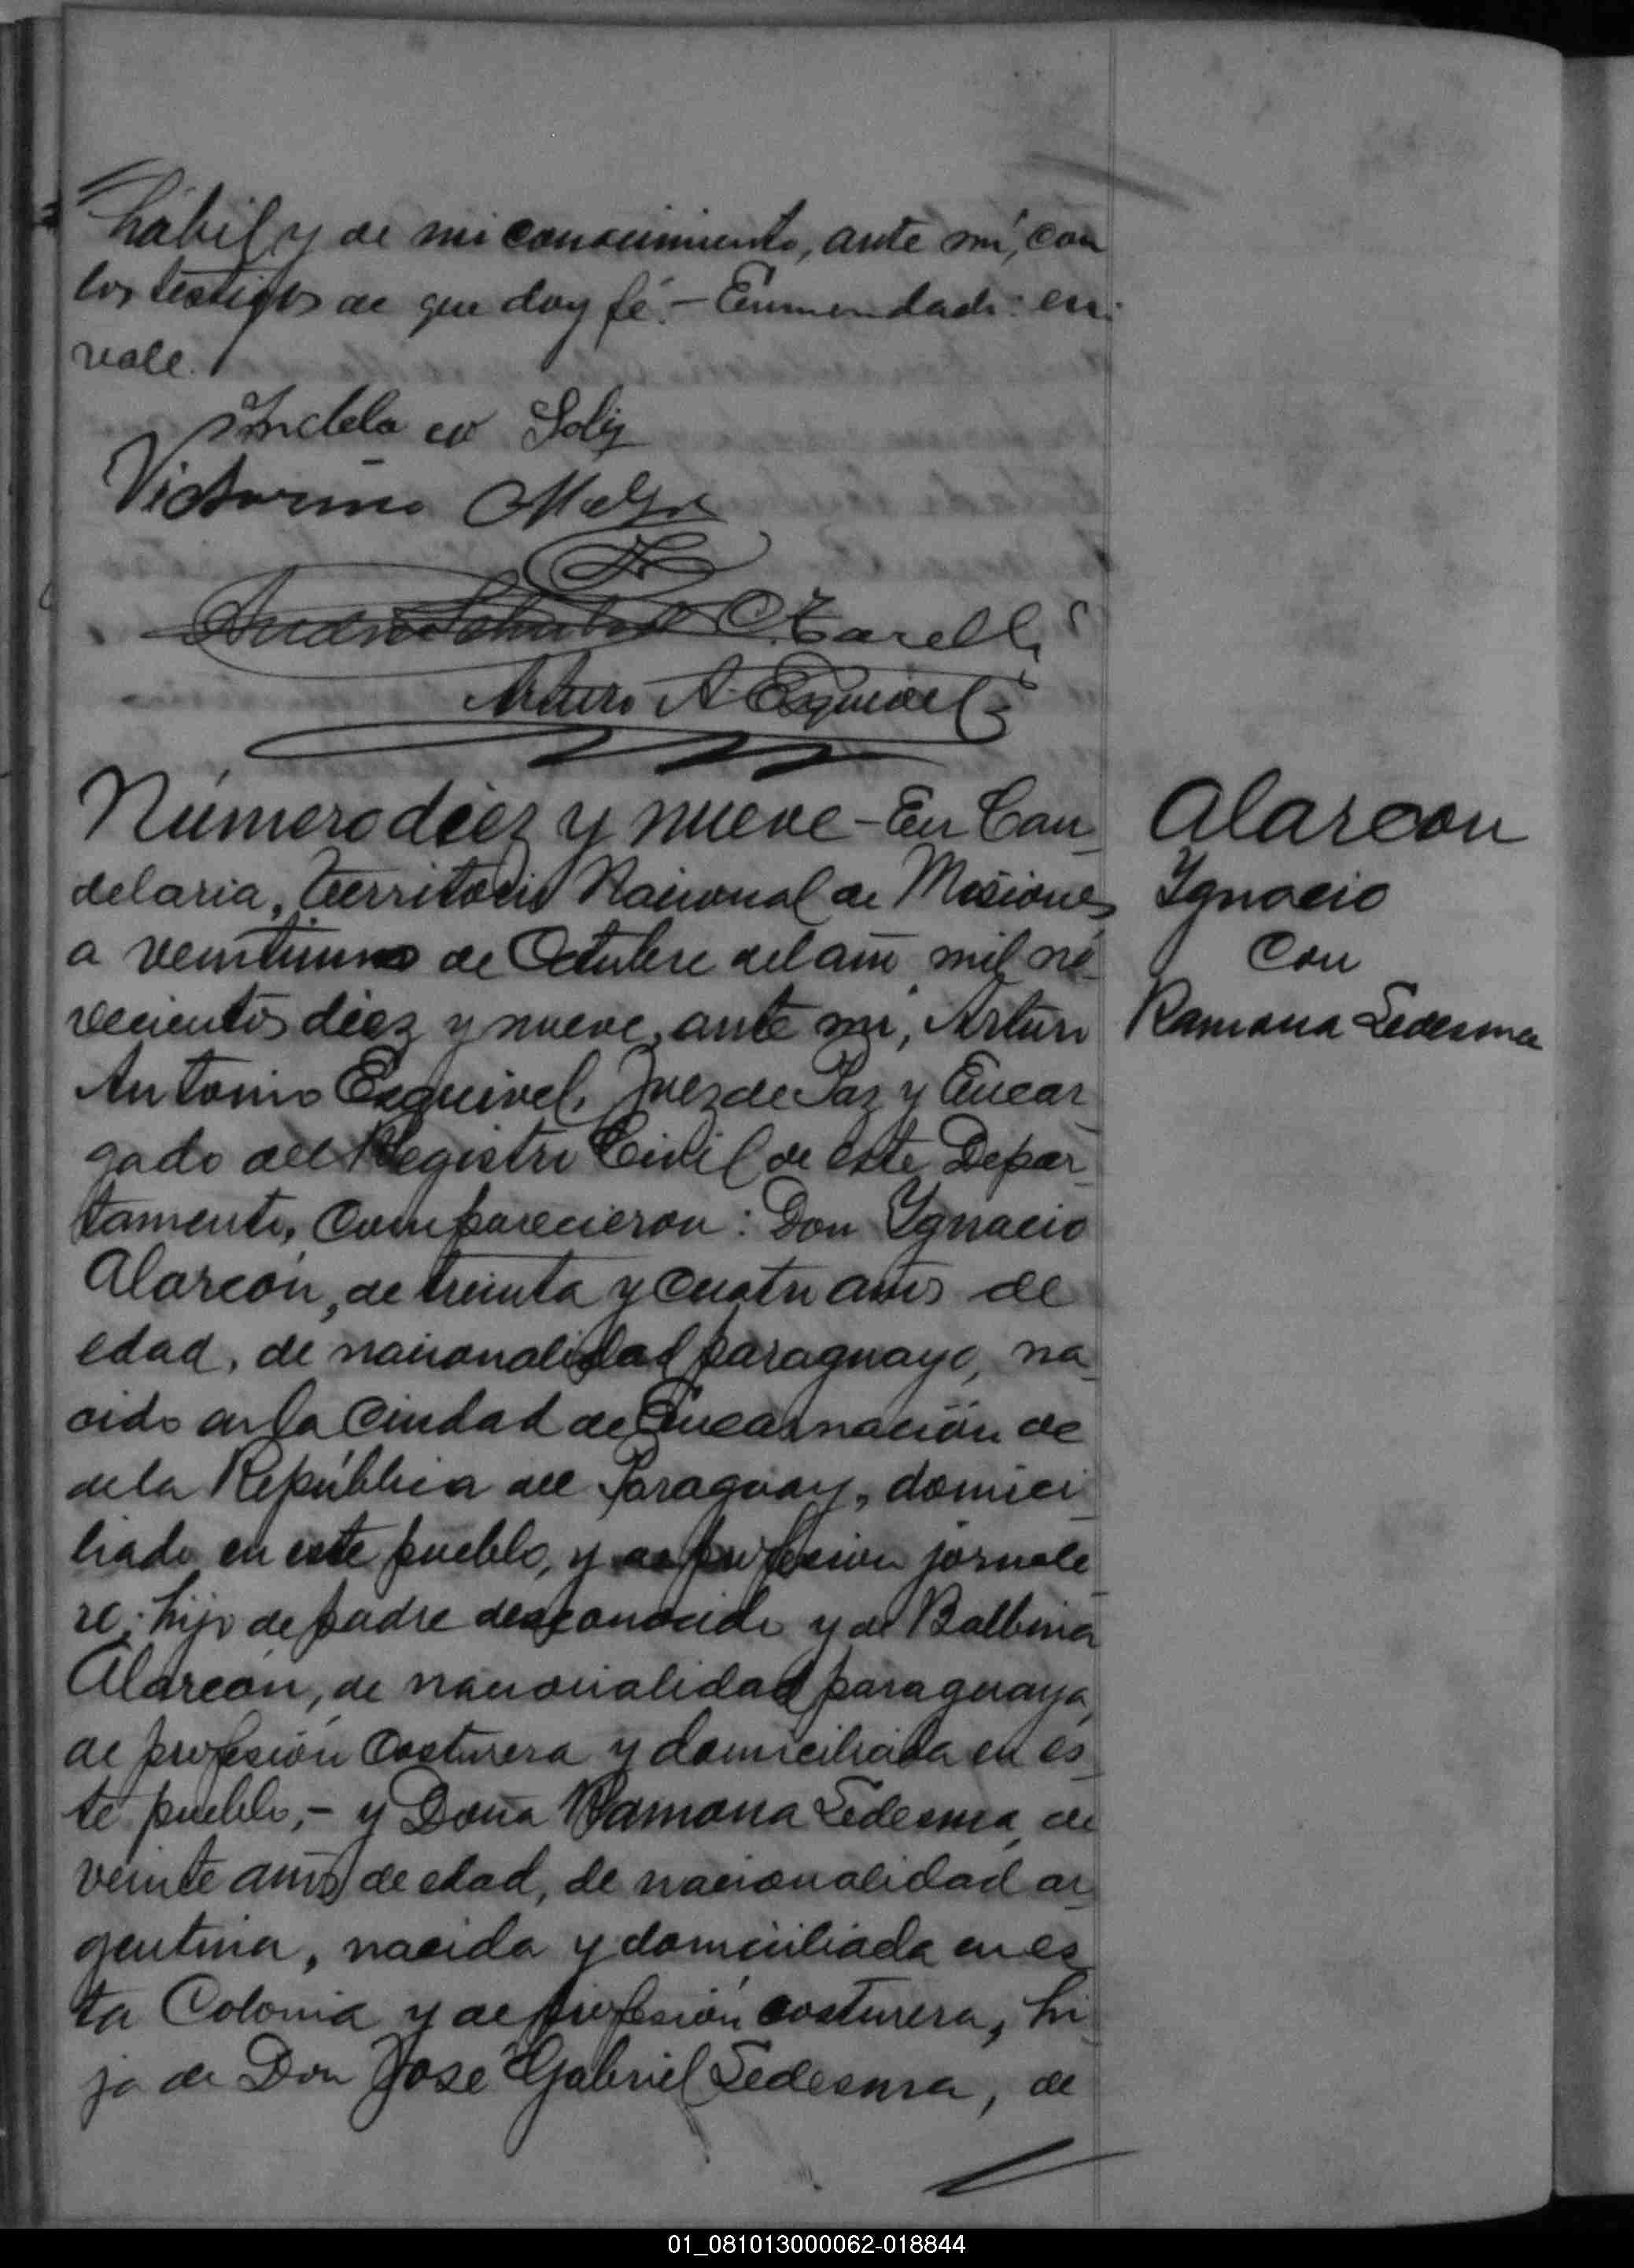 hábil y de mi conocimiento, ante mí, con
los testigos de que doy fé.- Enmendado: en:
vale.
Solis
Victorino
C. Tarelli
Arturo A. Esquivel
Número diez y nueve - En Can
delaria, Territorio Nacional de Misiones
a veintiuno de Octubre del año mil no
vecientos diez y nueve, ante mi, Arturo
Antonio Esquivel, Juez de Paz y Encar
gado del Registro Civil de este Depar
tamento, Comparecieron: Don Ygnacio
Alarcón, de treinta y cuatro años de
edad, de nacionalidad paraguayo, na
cido en la Ciudad de Encarnación de
de la República del Paraguay, domici
liado en este pueblo, y de profesion jornale
ro; hijo de padre desconocido y de Balbina
Alarcón, de nacionalidad paraguaya,
de profesión Costurera y domiciliada en es
te pueblo,- y Doña Ramona Ledesma, de
veinte años de edad, de nacionalidad ar
gentina, nacida y domiciliada en es
ta Colonia y de profesión costurera, hi
ja de Don José Gabriel Ledesma, de
Alarcon
Ygnacio
Con
Ramona Ledesma
01_081013000062-018844